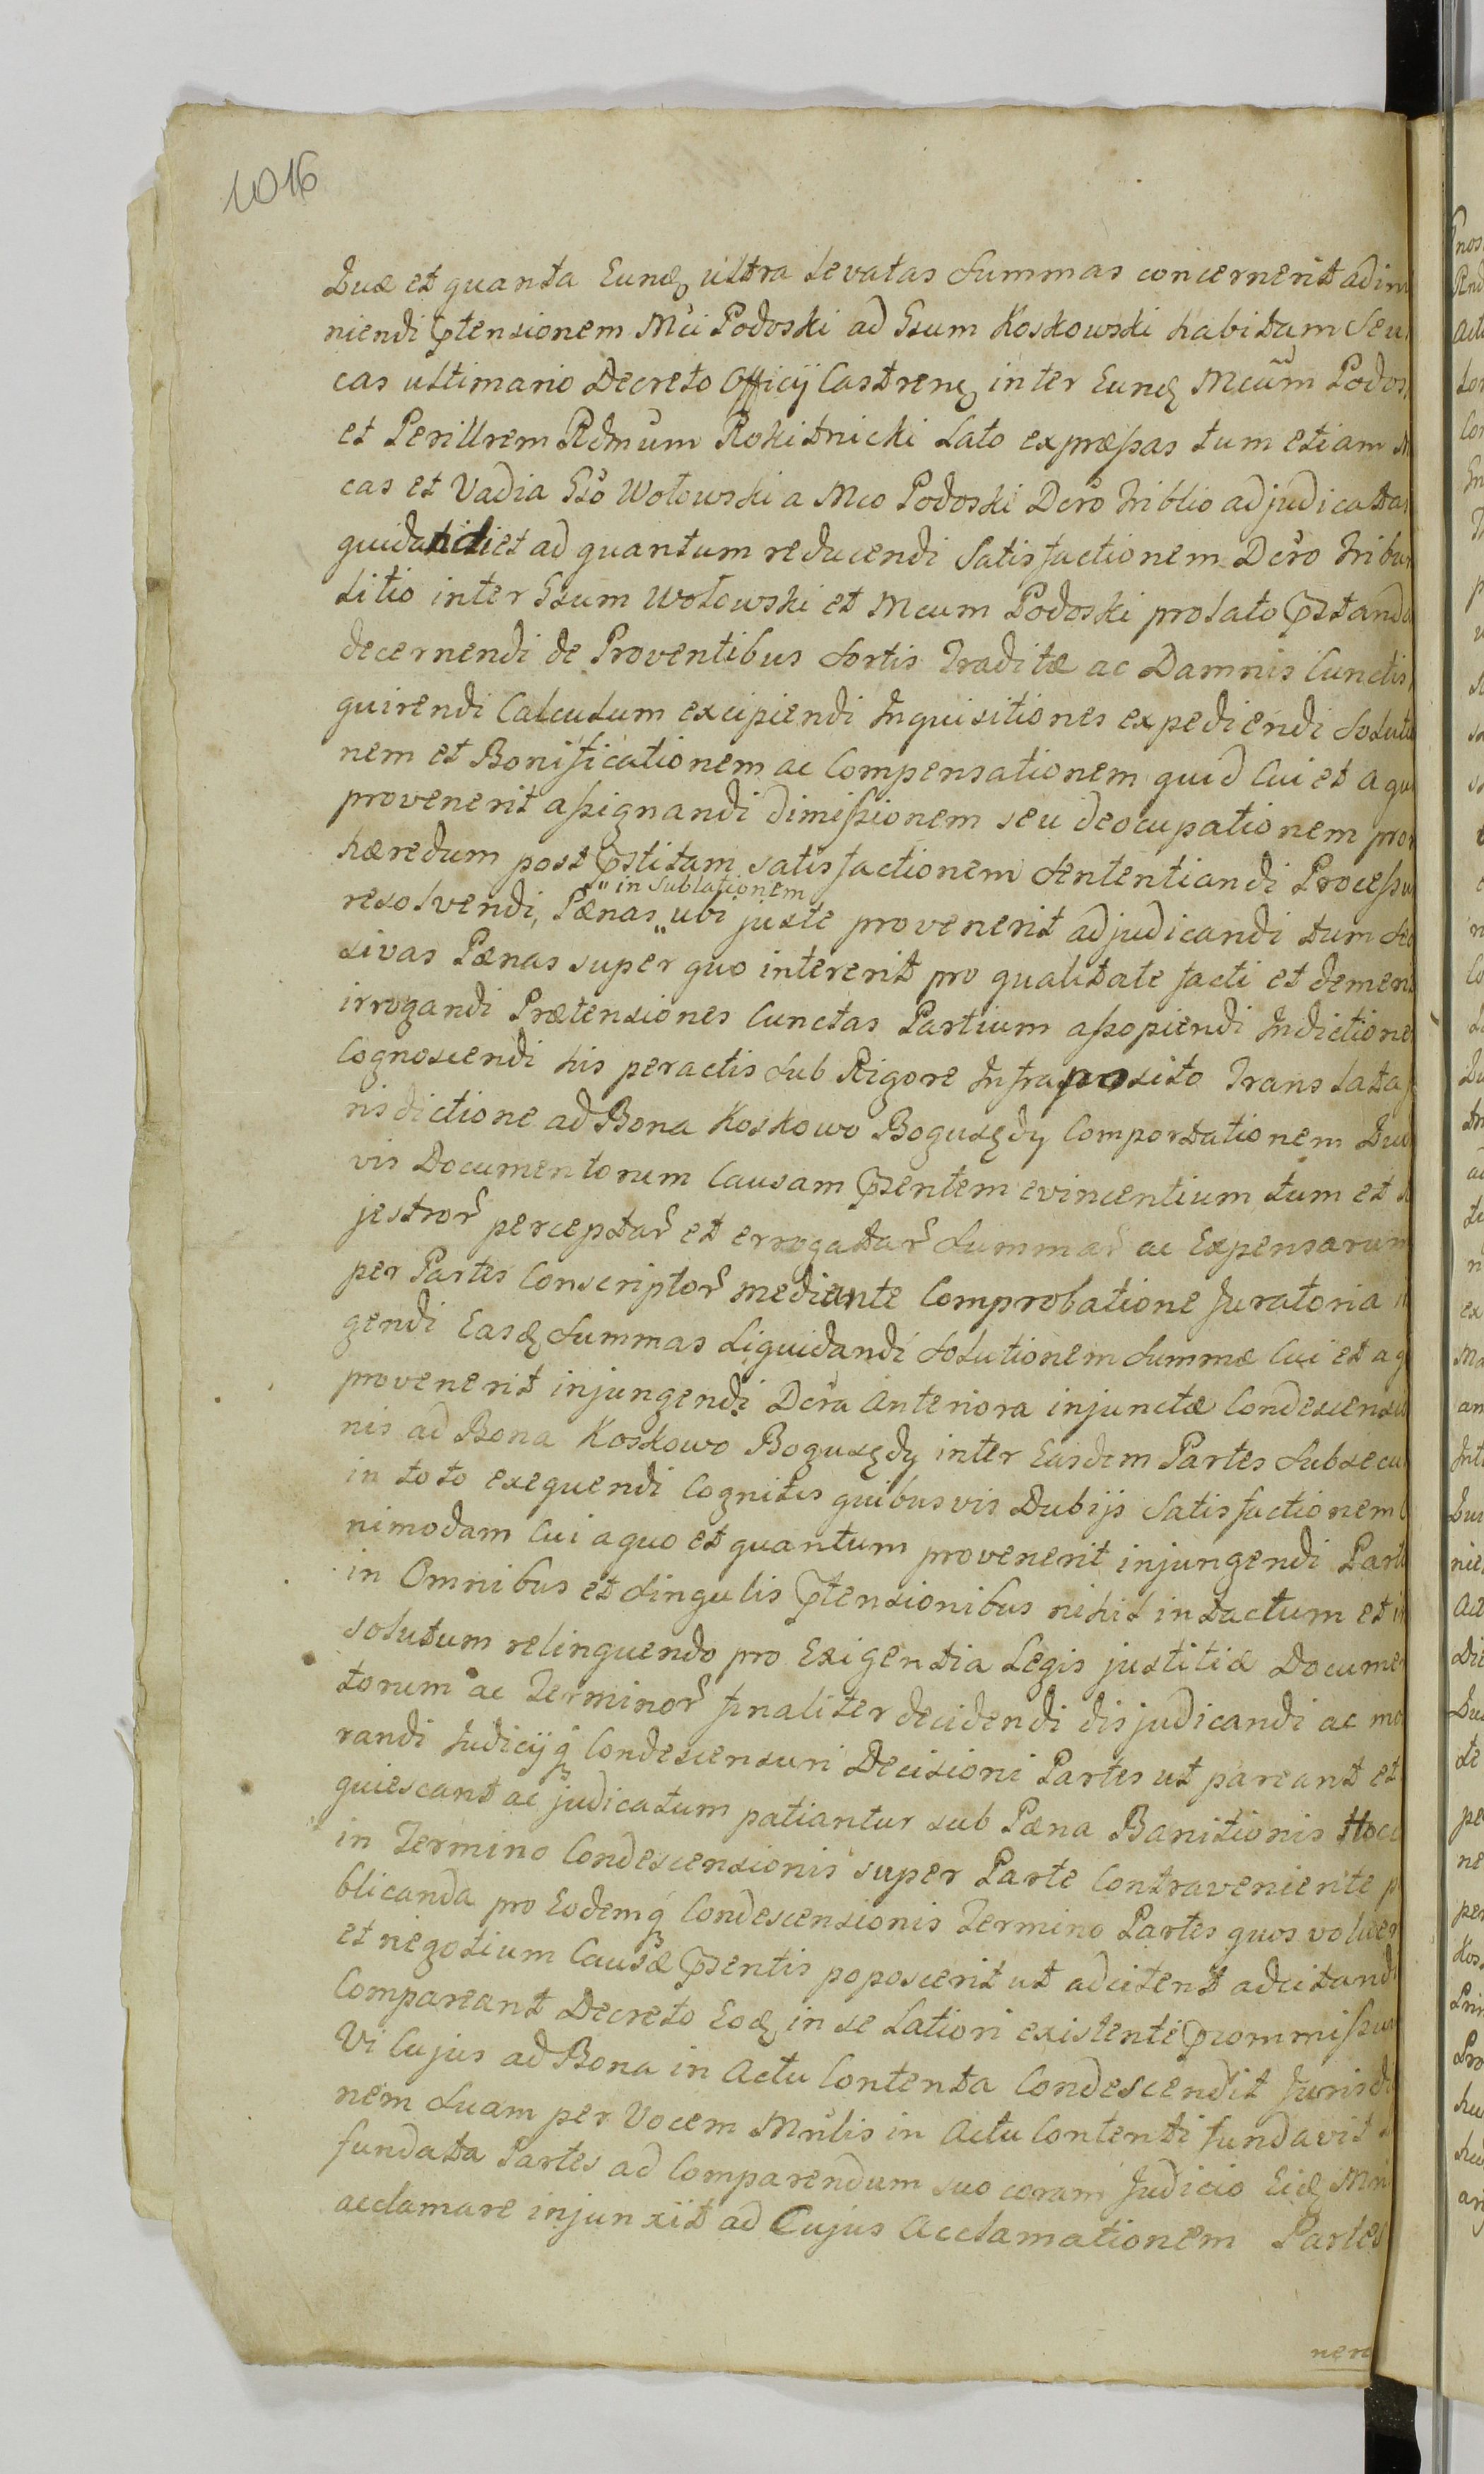 1016
Quæ et quanta Eund. ultra levatas Summas concernerit ad
niendi Prtensionem Mci Podoski ad Gsum Koskowski habitam Seu
cas ultimario Decreto Officij Castrens. inter Eund. Mcum Podos
et Perillrem Rdmum Rokitnicki Lato expræssas tum etiam
cas et Vadia Gso Wołowski a Mco Podoski Dcro Triblio adjudicatas
quidandi et ad quantum reducendi Satisfactionem Dcro Tribu
litio inter Gsum Wołowski et Mcum Podoski prolato Prstand
decernendi de Proventibus Sortis Traditæ ac Damnis Cunctis
quirendi Calculum excipiendi Inquisitiones expediendi Soluti
nem et Bonificationem ac Compensationem quid Cui et a quo
provenerit assignandi dimissionem seu deocupationem pro
hæredum post Prstitam satisfactionem Sententiandi Processu
in Sublationem
resolvendi, Pænas " ubi juste provenerit adjudicandi tum
sivas Pænas super quo intererit pro qualitate facti et demerit
irrogandi Prætensiones Cunctas Partium assopiendi Indictione
Cognoscendi his peractis Sub Rigore Infraposito Translata
risdictione ad Bona Koskowo Bogusędy Comportationem Qui
vis Documentorum Causam Prsentem evincentium tum et
jestror. perceptar. et errogatar. Summar. ac Expensarum
per Partes Conscriptor. mediante Comprobatione Juratoria
gendi Easd. Summas Liquidandi Solutionem Summæ Cui et a
provenerit injungendi Dcra Anteriora injunctæ Condescensio
nis ad Bona Koskowo Bogusędy inter Easdem Partes Subsecu
in toto exequendi Cognitis quibusvis Dubijs Satisfactionem
nimodam Cui a quo et quantum provenerit injungendi Part
in Omnibus et Singulis Prtensionibus nihil intactum et
solutum relinquendo pro Exigentia Legis justitiæ Docume
torum ac Terminor. finaliter decidendi disjudicandi ac
randi Judicijq. Condescensuri Decisioni Partes ut pareant et
quiescant ac judicatum patiantur sub Pæna Banitionis
in Termino Condescensionis super Parte Contraveniente
blicanda pro Eodemq. Condescensionis Termino Partes quos voluer
et negotium Causæ Prsentis poposcerit ut adcitent adcitandi
Compareant Decreto Eod. in se Latiori existente Prcommissum
Vi Cujus ad Bona in Actu Contenta Condescendit Jurisdi
nem Suam per Vocem Mnlis in Actu Contenti fundavit
fundata Partes ad Comparendum suo coram Judicio Eid. Mn
acclamare injunxit ad Cujus Acclamationem Partes